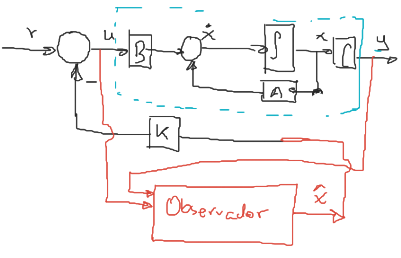 r
u
B
ẋ
∫
x
C
y
A
K
Observador
x̂